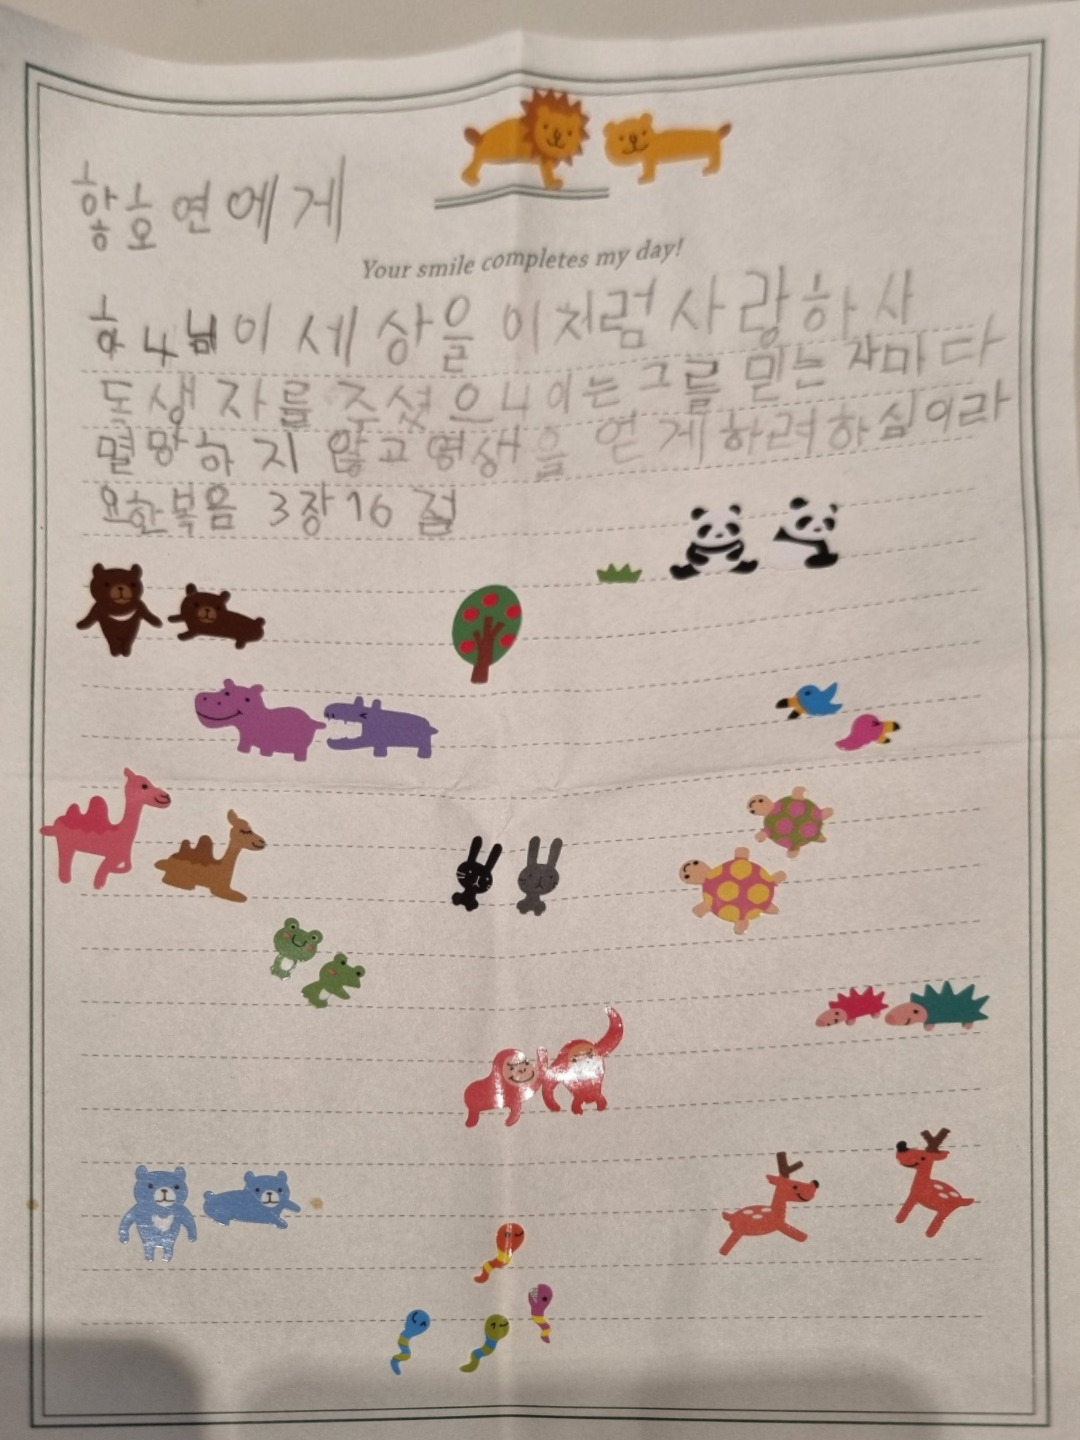 황호연에게
Your smile completes my day!
하나님이 세상을 이처럼 사랑하사
독생자를 주셨으니 이는 그를 믿는 자마다
멸망하지 않고 영생을 얻게 하려 하심이라
요한복음 3장 16절